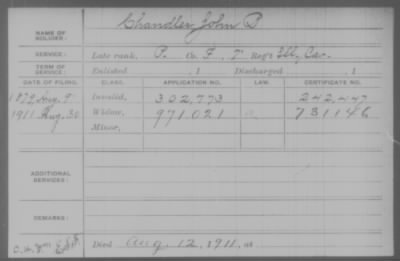 NAME OF SOLDIER: Chandler, John B
SERVICE: Late rank, P. Co. F, 7 Reg't Ill. Cav.
TERM OF SERVICE: Enlisted , 1 Discharged , 1
DATE OF FILING. CLASS. APPLICATION NO. LAW. CERTIFICATE NO.
1879 Aug. 9 Invalid, 302,773 242,447
1911 Aug. 30 Widow, 971021 731146
Minor,
ADDITIONAL SERVICES:
REMARKS:
Died Aug. 12, 1911, at